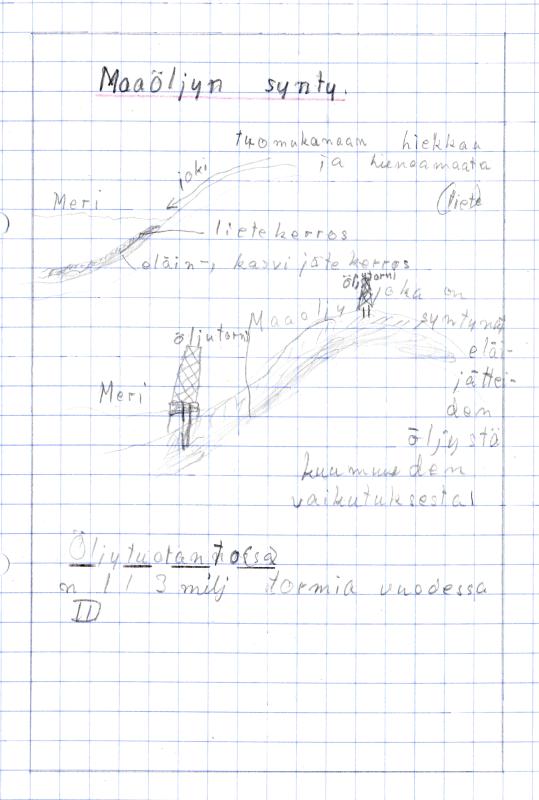 Maaöljyn synty.
tuo mukanaan hiekkaa
ja hienoamaata
joki
(liete
Meri
lietekerros
eläin-, kasvi jäte kerros
öljytorni
Maaöljy joka on
syntynyt
öljutorni
eläi-
jättei-
Meri
den
öljystä
kuumuuden
vaikutuksesta
Öljytuotanto(sa)
n 113 milj tonnia vuodessa
II